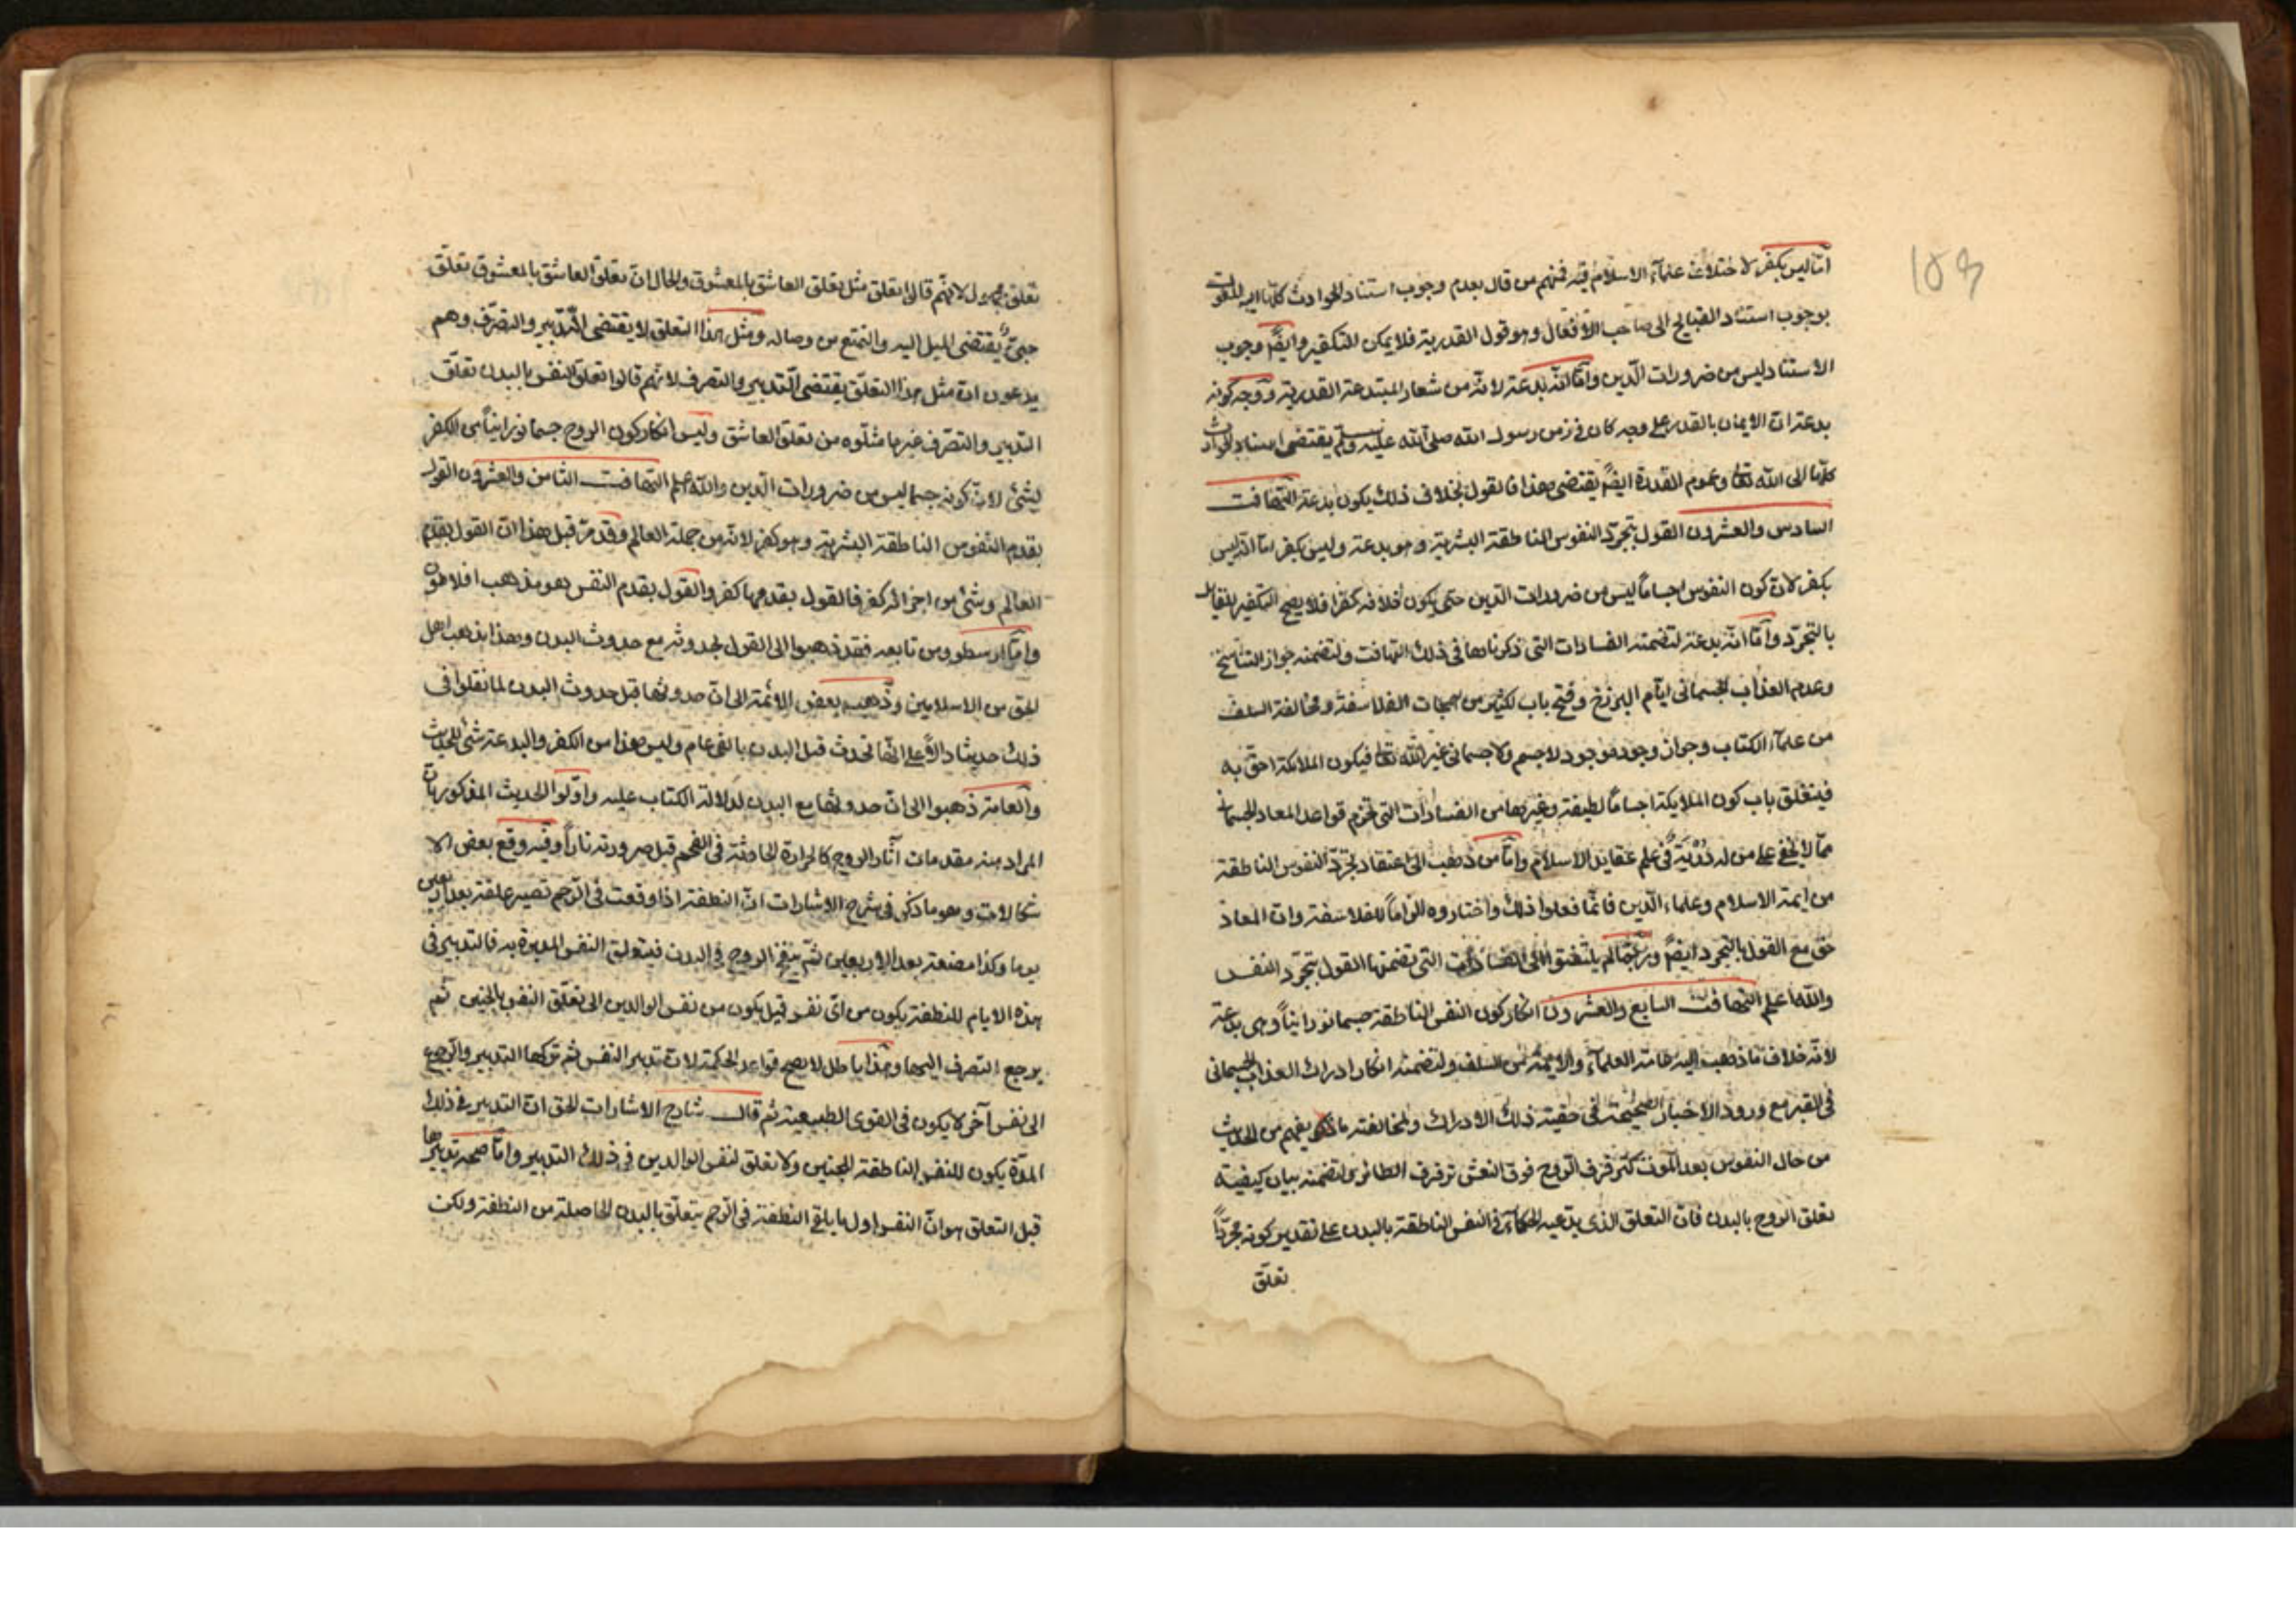 انه ليس بكفر لاختلاف علمآء الاسلام فيه فمنهم من قال بعدم وجوب استناد الحوادث كلها اليه
بوجوب استناد القبايح الى صاحب الافعال وهو قول القدرية فلا يمكن التكفير وايضً وجوب
الاستناد ليس من ضرورات الدّين وامّا انّه بدعة لانّه من شعار المبتدعة القدرية ووجه كونه
بدعة انّ الايمان بالقدر على وجه كان في زمن رسول الله صلى الله عليه وسلم يقتضى اسناد الحوادث
كلّها الى الله تعا وعموم القدرة ايضً يقتضى هذا فالقول بخلاف ذلك يكون بدعة التهافت
السادس والعشرون القول بتجرّد النفوس الناطقة البشرية وهو بدعة وليس بكفر امّا انّه ليس
بكفر لانّ كون النفوس اجساماً ليس من ضرورات الدّين حتى يكون خلافه كفرا فلا يصح التكفير للقايل
بالتجرّد وامّا انّه بدعة لتضمنه الفسادات التى ذكرناها في ذلك التهافت ولتضمنه جواز التناسخ
وعدم العذاب الجسمانى ايّام البرزخ وفتح باب لكثير من الفلاسفة ومخالفة السلف
من علمآء الكتاب وجواز وجود موجود لا جسم ولا جسمانى غير الله تعا فيكون الملايكة احق به
فينغلق باب كون الملايكة اجساماً لطيفة وغيرها من الفسادات التى تخرم قواعد المعاد الجسمانى
ممّا لا يخفى على من له دُرْبَة في علم عقايد الاسلام وامّا من ذهب الى اعتقاد تجرّد النفوس الناطقة
من ايمة الاسلام وعلماء الدّين فانّما فعلوا ذلك واختاروه الزاماً للفلاسفة وان المعاد
حق مع القول بالتجرد ايضً وربّما لم يلتفتوا الى الفسادات التى تضمنها القول بتجرّد النفس
والله اعلم التهافت السابع والعشرون انكار كون النفس الناطقة جسما نورانياً وهى بدعة
لانّه خلاف ما ذهب اليه عامة العلمآء والايمة من السلف ولتضمنه انكار ادراك العذاب الجسمانى
في القبر مع ورود الاخبار الصحيحة في حقية ذلك الادراك ولمخالفته ما يفهم من الحديث
من حال النفوس بعد الموت كترفرف الروح فوق النعش ترفرف الطائر ولتضمنه بيان كيفية
تعلق الروح بالبدن فانّ التعلق الذى يدّعيه الحكمآء في النفس الناطقة بالبدن على تقدير كونه مجرّداً
تعلق
تعلق مجهول لانّهم قالوا تعلق مثل تعلق العاشق بالمعشوق والحال انّ تعلّق العاشق بالمعشوق تعلّق
يقتضى الميل اليه والتمتع من وصاله ومثل هذا التعلق لا يقتضى التّدبير والتصرّف وهم
يدعون انّ مثل هذا التعلّق يقتضى التّدبير والتصرف لانّهم قالوا تعلّق النفس بالبدن تعلّق
التدبير والتصرّف غير ما مثلوه من تعلق العاشق وليس انكار كون الروح جسما نورانياً من الكفر
لشئ لانّ كونه جسما ليس من ضرورات الدّين والله اعلم التهافت الثامن والعشرون القول
بقدم النفوس الناطقة البشرية وهو كفر لانّه من جملة العالم وقد مرّ قبل هذا انّ القول بقدم
العالم وشئ من اجزائه كفر فالقول بقدمها كفر والقول بقدم النفس هو مذهب افلاطون
وامّا ارسطو ومن تابعه فقد ذهبوا الى القول بحدوثه مع حدوث البدن وهذا مذهب اهل
الحق من الاسلاميين وذهب بعض الائمة الى انّ حدوثها قبل حدوث البدن لما نقلوا في
ذلك حديثا دالاً على انّها تحدث قبل البدن بالفى عام وليس هذا من الكفر والبدعة شئ للحديث
والعامة ذهبوا الى انّ حدوثها مع البدن لدلالة الكتاب عليه واوّلوا الحديث المذكور بانّ
المراد منه مقدمات آثار الروح كالحرارة الحادثة في الفحم قبل صيرورته ناراً وفيه وقع بعض الا
شكالات وهو ما ذكر في شرح الاشارات انّ النطفة اذا وقعت في الرّحم تصير علقة بعد اربعين
يوما وكذا مضغة بعد الاربعين ثم ينفخ الروح في البدن فيتعلق النفس المدبرة به فالتدبير في
هذه الايام للنطفة يكون من اىّ نفس قيل يكون من نفس الوالدين الى تعلّق النفس بالجنين ثم
يرجع التصرف اليها وهذا باطل لا يصح قواعد الحكمة لانّ تدبير النفس ثم تركها التدبير والرّجوع
الى نفس آخر لا يكون في القوى الطبيعية ثم قال شارح الاشارات الحق انّ التدبير في ذلك
المدّة يكون للنفس الناطقة للجنين ولا تعلق لنفس الوالدين في ذلك التدبير وامّا صحة تدبيرها
قبل التعلق هو انّ النفس اول ما يلقى النطفة في الرّحم يتعلّق بالبدن الحاصلة من النطفة ولكن